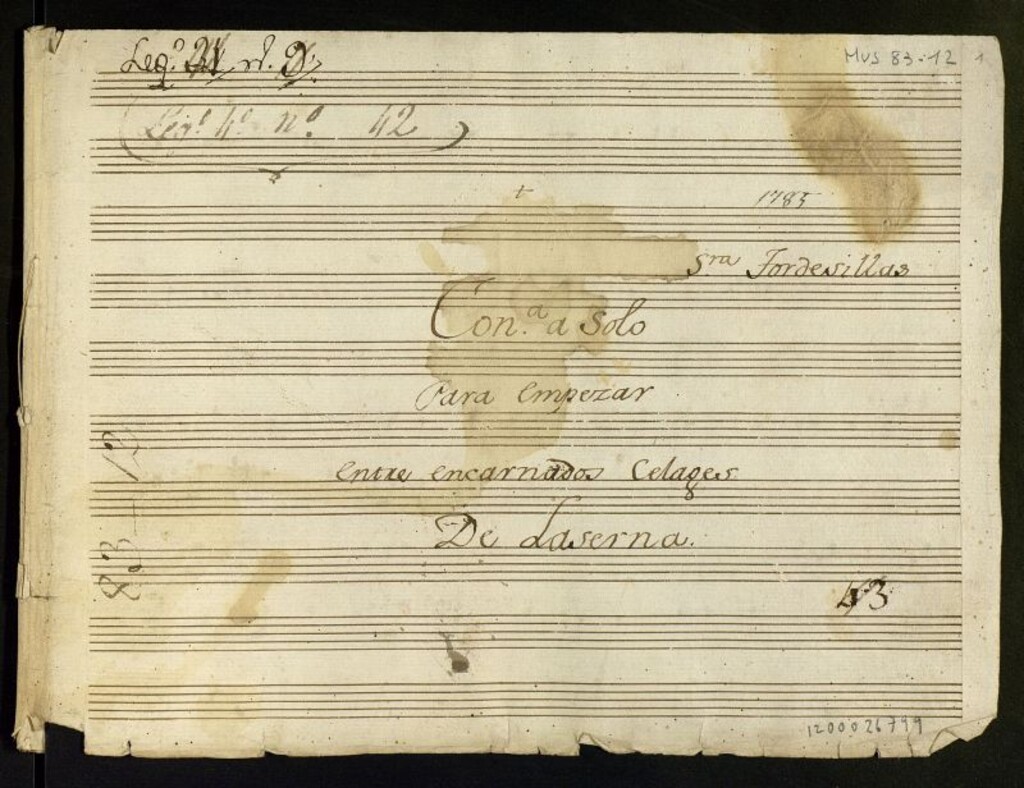 Leg.º 21 n. 9
MUS 83-12 1
Leg.º 4º nº 42
1785
Sra Tordesillas
Con.ª a Solo
Para empezar
entre encarnados Celages
De Laserna.
83-12
43
1200026799